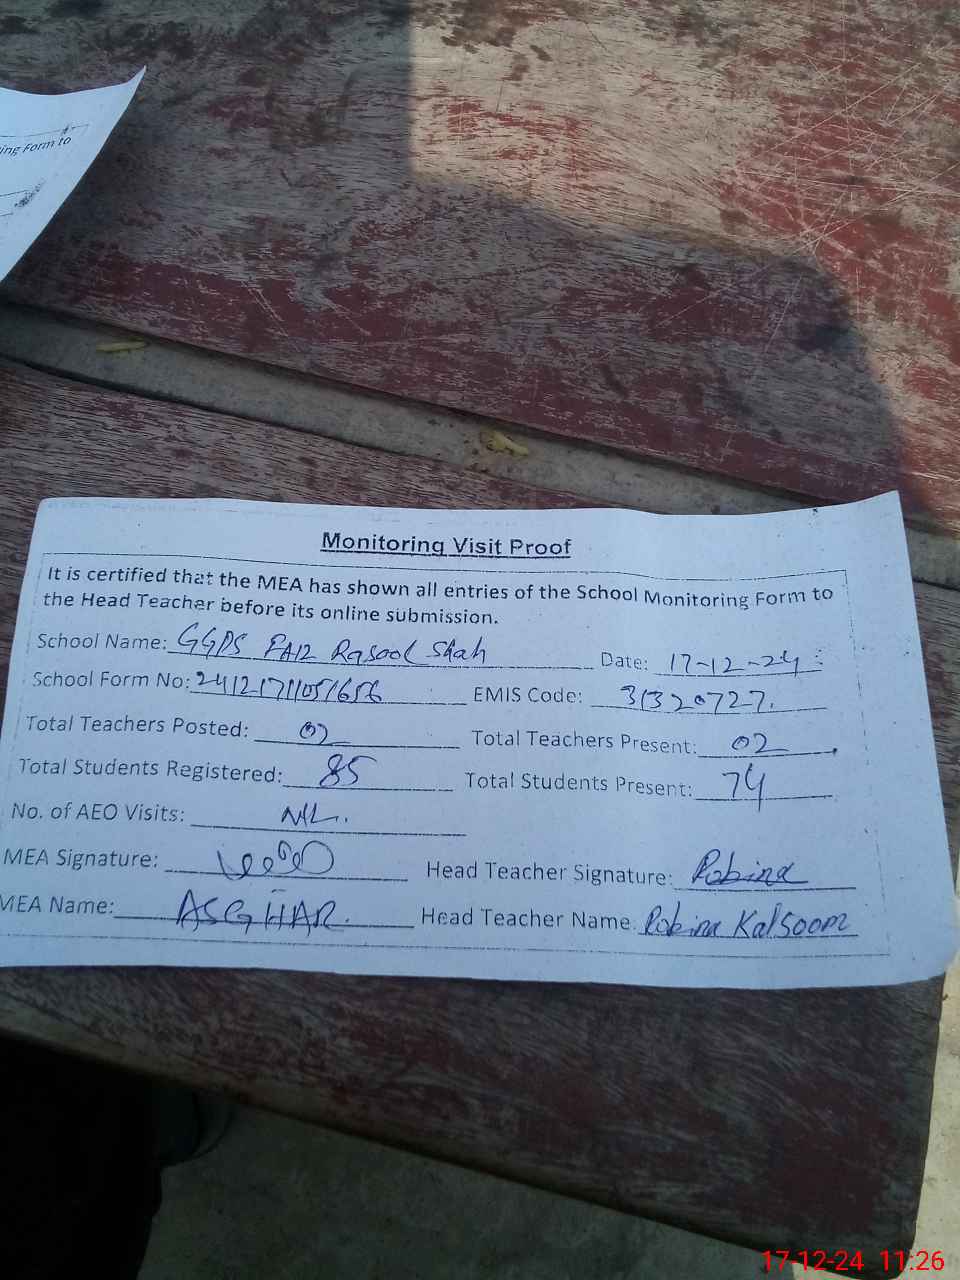 ing Form to
Monitoring Visit Proof
It is certified that the MEA has shown all entries of the School Monitoring Form to
the Head Teacher before its online submission.
School Name: GGPS FAIZ Rasool Shah Date: 17-12-24
School Form No: 24121711051656 EMIS Code: 31320727
Total Teachers Posted: 02 Total Teachers Present: 02
Total Students Registered: 85 Total Students Present: 74
No. of AEO Visits: NIL.
MEA Signature: Head Teacher Signature: Robina
MEA Name: ASGHAR. Head Teacher Name: Robina Kalsoom
17-12-24 11:26